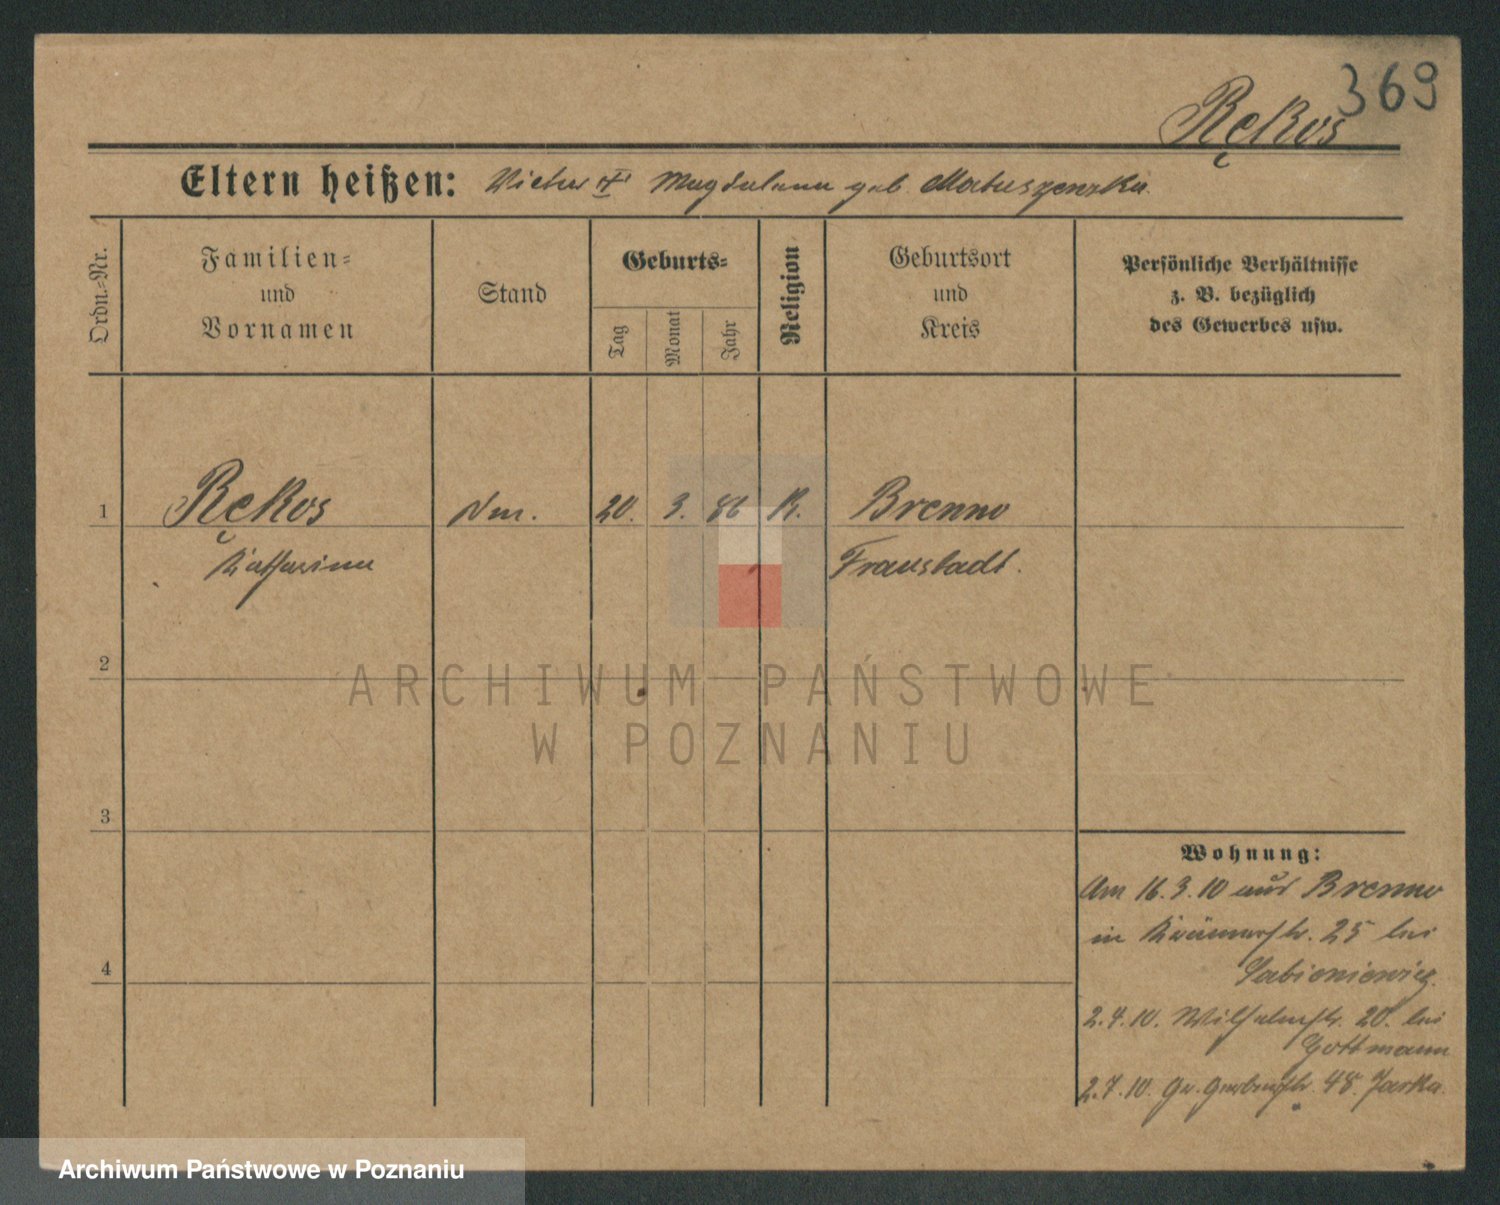 369
Rękos
Eltern heißen: Victor Magdalena geb. Matuszewska
Ordn.-Nr.
Familien- und Vornamen
Stand
Geburts-
Tag
Monat
Jahr
Religion
Geburtsort und Kreis
Persönliche Verhältnisse
z. B. bezüglich
des Gewerbes usw.
1 Rękos 20. 3. 86 K. Brenno
Katharina Fraustadt.
2
ARCHIWUM PAŃSTWOWE
W POZNANIU
3
Wohnung:
Am 16.3.10 aus Brenno
in Krämerstr. 25 bei
4
2.4.10. Wilhelmstr. 20. bei
Gottmann
2.7.10. Gr. Gerberstr. 48. Jaska
Archiwum Państwowe w Poznaniu